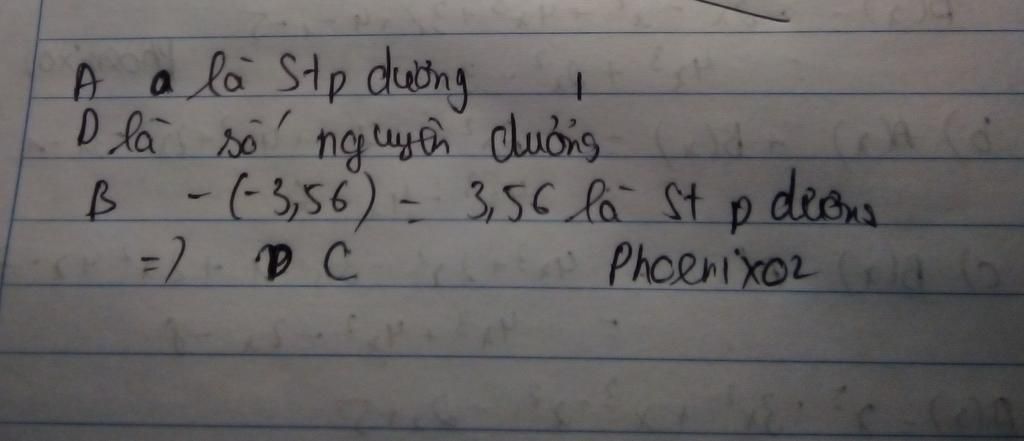 A a là Stp dương
D là số nguyên dương
B - (-3,56) = 3,56 là St p dương
=) C Phoenixo2